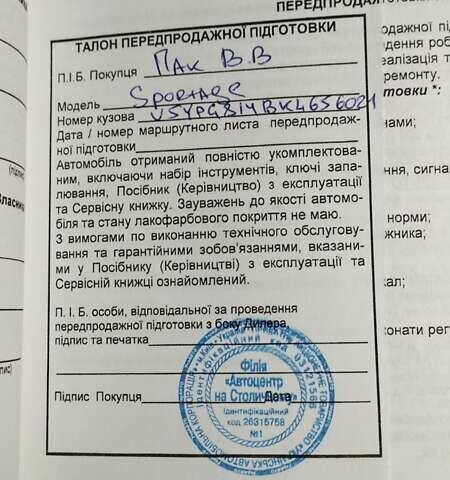 ПЕРЕДПРОДА
ТАЛОН ПЕРЕДПРОДАЖНОЇ ПІДГОТОВКИ
П.І.Б. Покупця Пак В.В
Модель Sportage
Номер кузова
Дата / номер маршрутного листа передпродаж-
ної підготовки
Автомобіль отриманий повністю укомплектова-
ним, включаючи набір інструментів, ключі запа-
лювання, Посібник (Керівництво) з експлуатації
та Сервісну книжку. Зауважень до якості автомо-
біля та стану лакофарбового покриття не маю.
З вимогами по виконанню технічного обслугову-
вання та гарантійними зобов'язаннями, вказани-
ми у Посібнику (Керівництві) з експлуатації та
Сервісній книжці ознайомлений.
П. І. Б. особи, відповідальної за проведення
передпродажної підготовки з боку Дилера,
підпис та печатка
Підпис Покупця Дата
Філія
«Автоцентр
на Столичному»
Ідентифікаційний
код 26315758
№1
Ідентифікаційний код 03121566
УКРАЇНСЬКА АВТОМОБІЛЬНА КОРПОРАЦІЯ
родажної пі
дення роб
еалізація т
ремонту.
товки *:
нами;
ння, сигна
норми;
жника;
кал;
конати рег